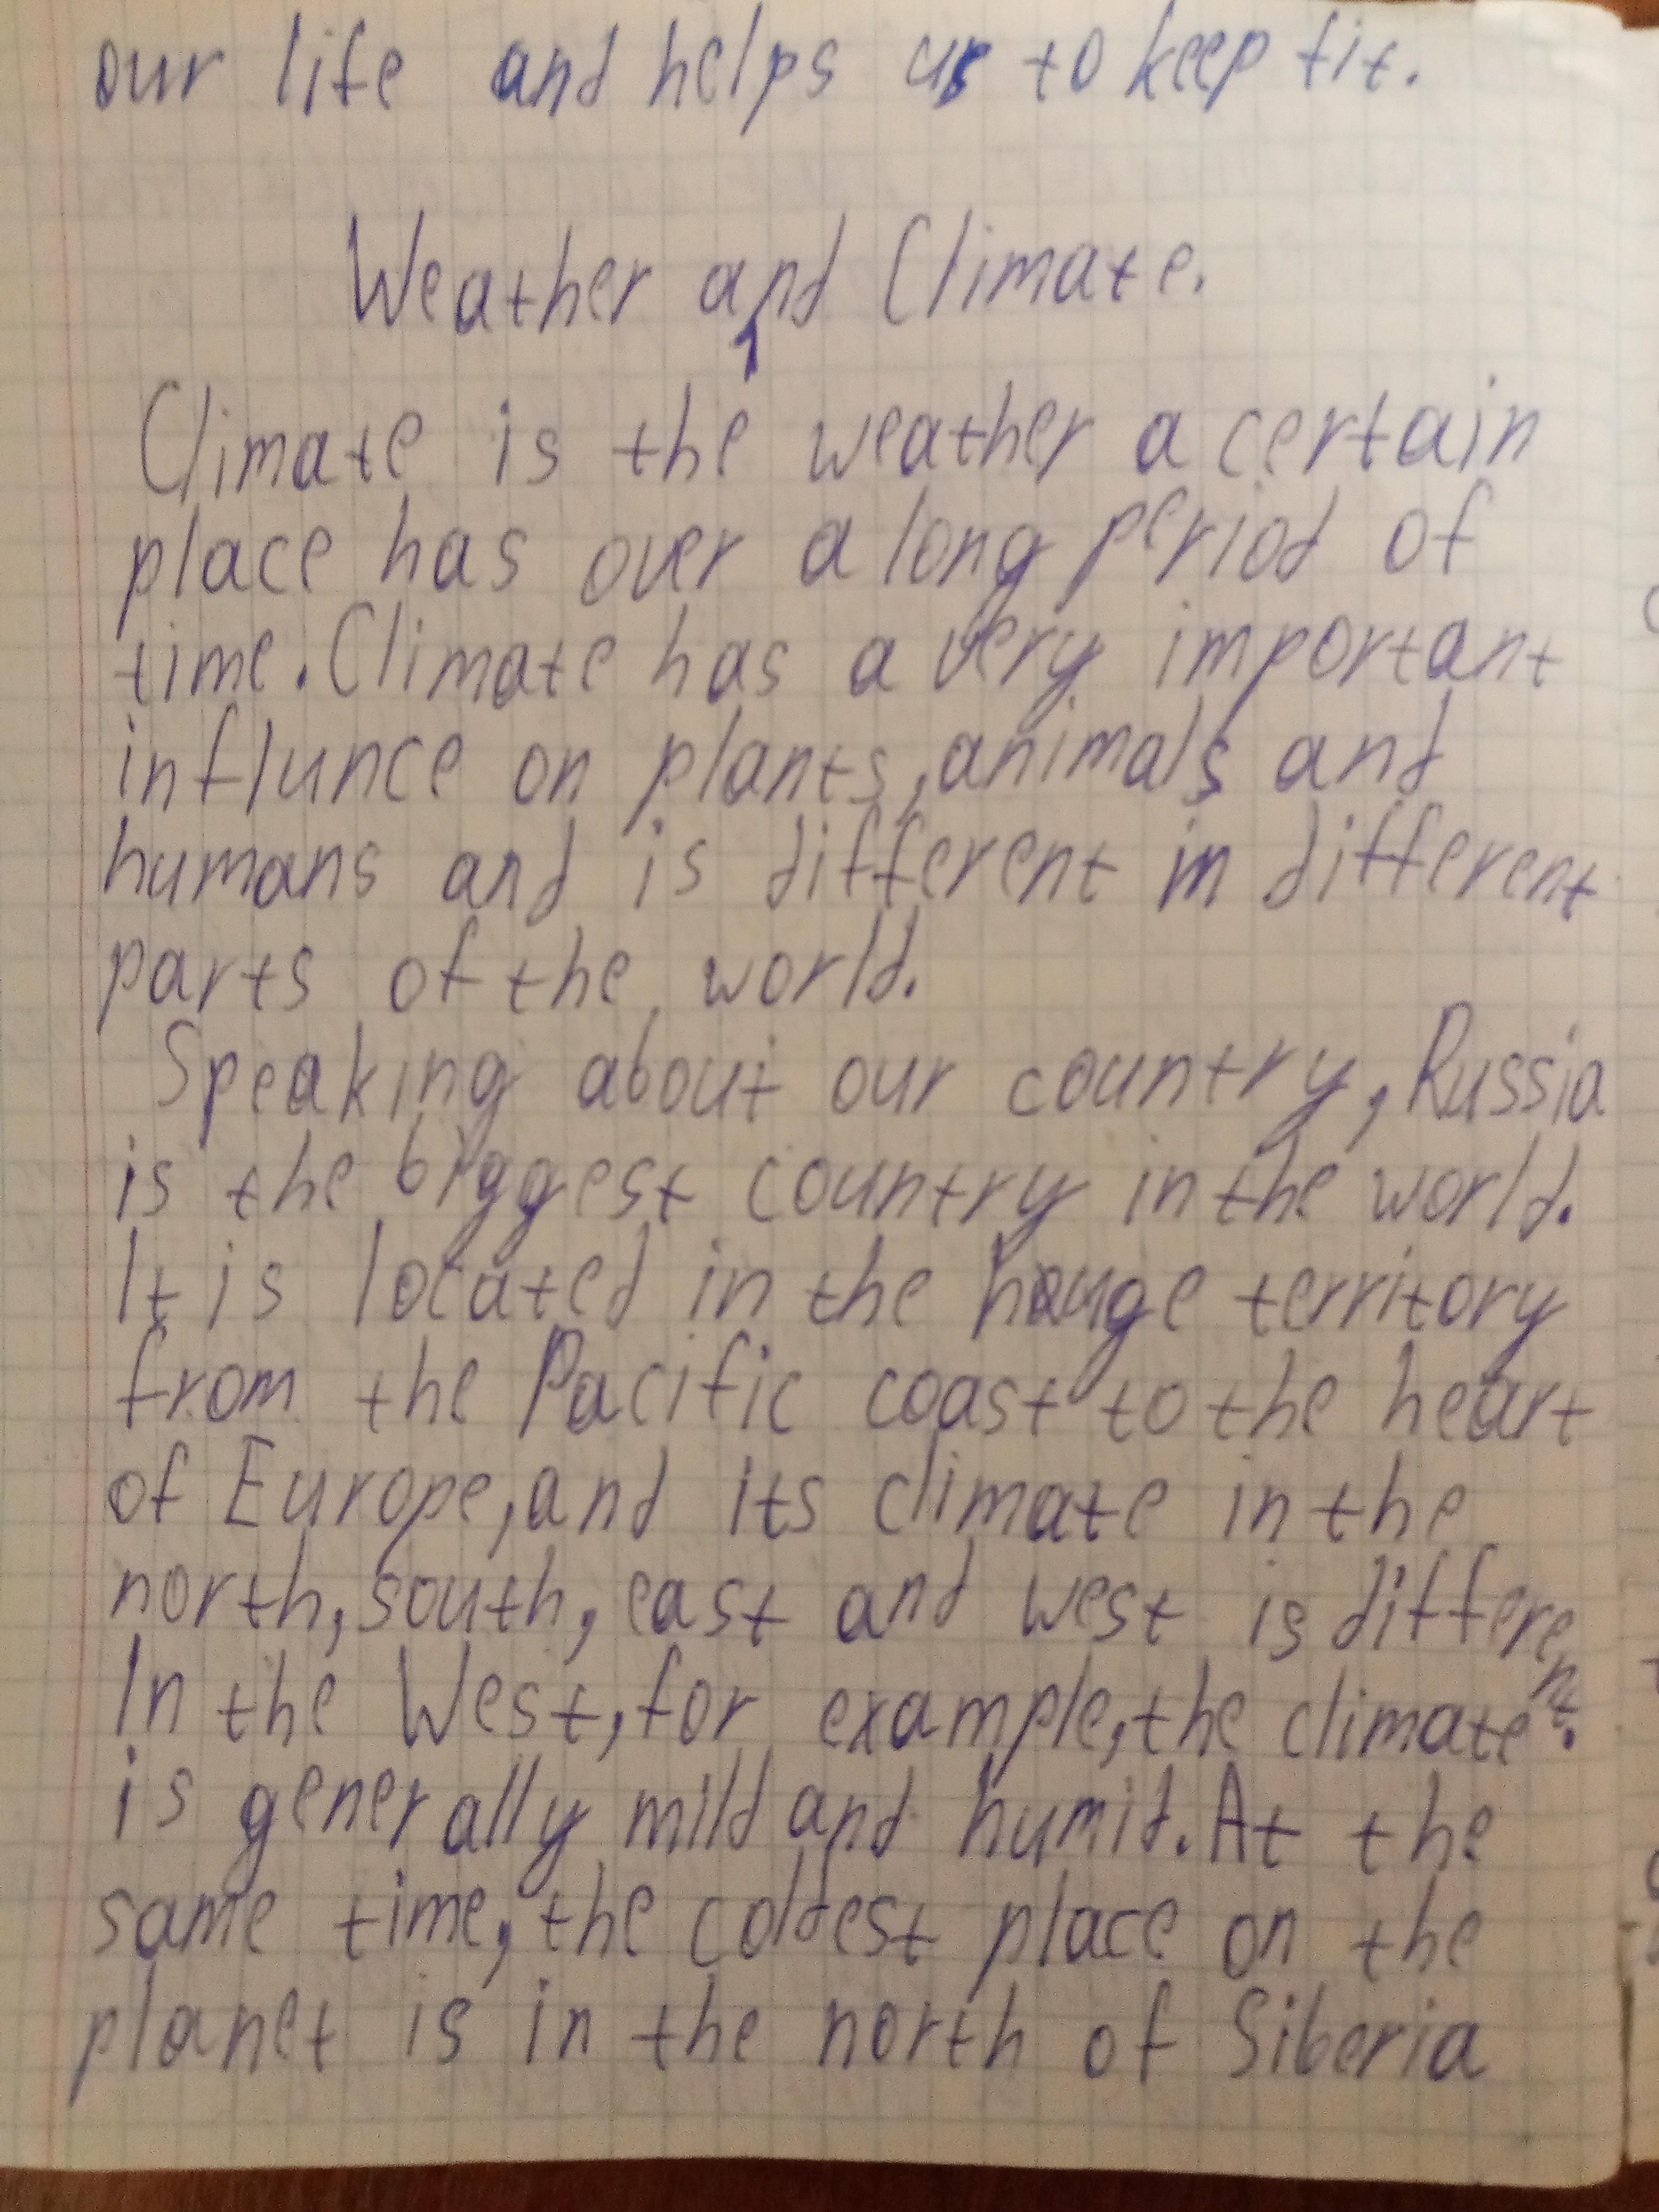 our life and helps us to keep fit.
Weather and Climate.
Climate is the weather a certain
place has over a long period of
time. Climate has a very important
influnce on plants, animals and
humans and is different in different
parts of the world.
Speaking about our country, Russia
is the biggest country in the world.
It is located in the houge territory
from the Pacific coast to the heart
of Europe, and its climate in the
north, south, east and west is different.
In the West, for example, the climate
is generally mild and humid. At the
same time, the coldest place on the
planet is in the north of Siberia